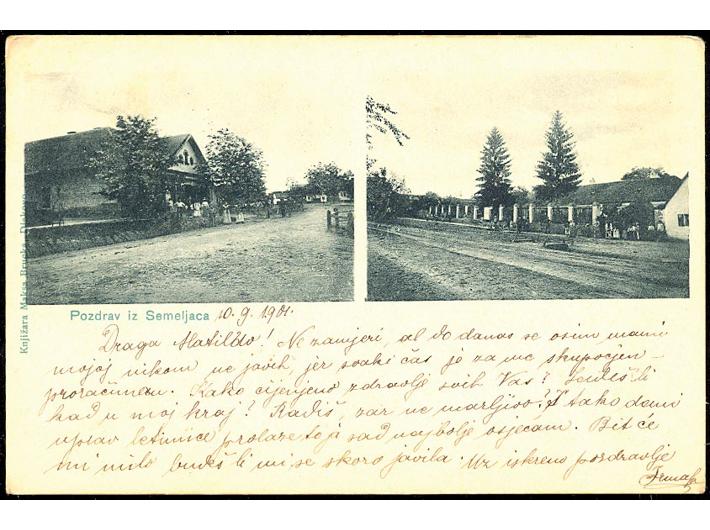 Knjižara Maksa Brucka, Djakovo
Pozdrav iz Semeljaca 10.9.1901.
Draga Matildo! Ne zamjeri, al do danas se osim mami
mojoj nikom ne javih, jer svaki čas je za me skupocjen –
proračunan. Kako cijenjeno zdravlje svih Vas?
kad u moj kraj? Radiš, zar ne marljivo? I tako dami
uprav letimice prolaze to ja sad najbolje osjećam. Bit će
mi milo budeš li mi se skoro javila. Uz iskreno pozdravlje
Irma